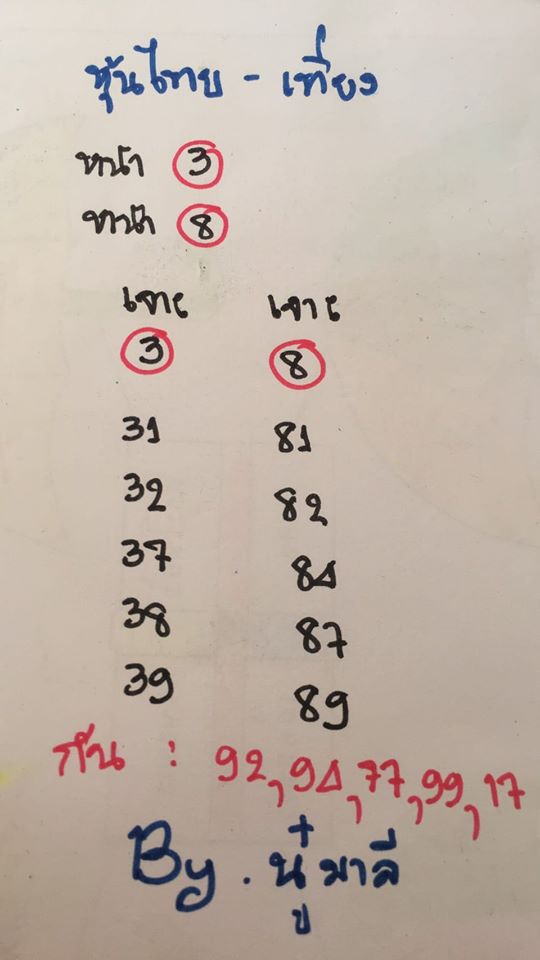 หุ้นไทย - เที่ยง
หน้า 3
หน้า 8
เจาะ เจาะ
3 8
31 81
32 82
37 84
38 87
39 89
กัน : 92, 94, 77, 99, 17
By. นู๋มาลี